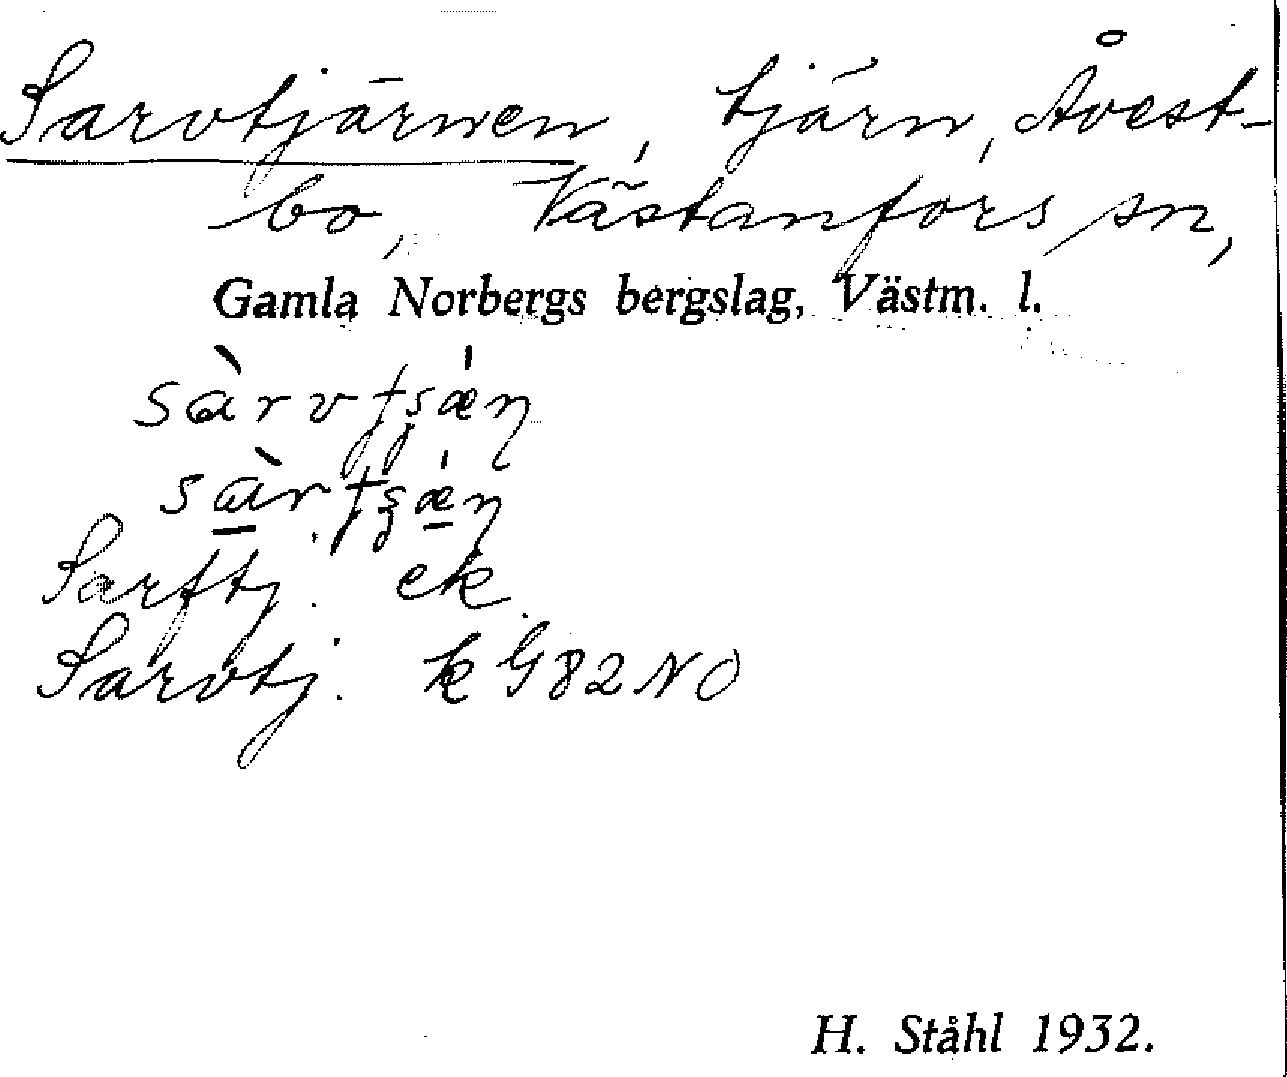 Sarvtjärnen, tjärn, Åvest-
bo, Västanfors sn,
Gamla Norbergs bergslag, Västm. l.
Sarftj. ek
Sarvtj. k G82NO
H. Ståhl 1932.